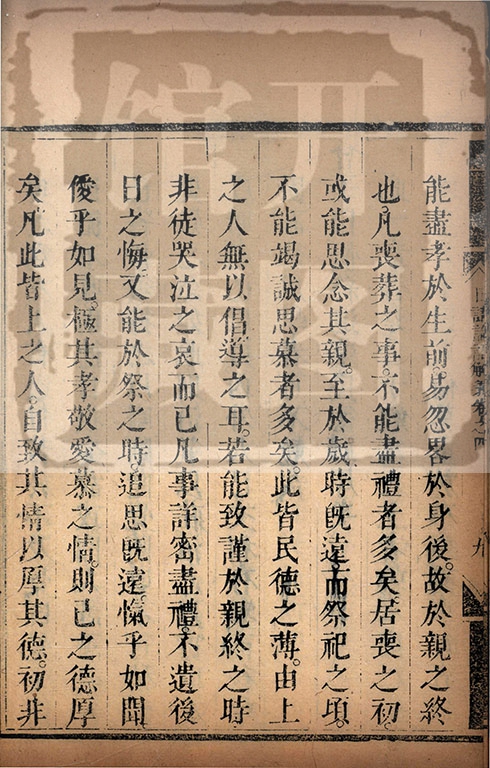 能盡孝於生前。易忽畧於身後。故於親之終
也凡喪葬之事。不能盡禮者多矣居喪之初。
或能思念其親。至於歲時旣遠而祭祀之頃。
不能竭誠思慕者多矣。此皆民德之薄。由上
之人無以倡導之耳。若能致謹於親終之時
非徒哭泣之哀而已凡事詳密盡禮。不遺後
日之悔又能於祭之時。追思旣遠。愾乎如聞
僾乎如見。極其孝敬愛慕之情。則已之德厚
矣凡此皆上之人。自致其情以厚其德。初非